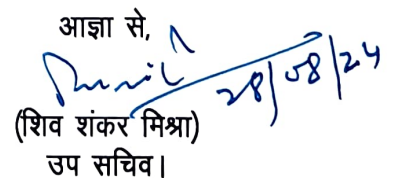 आज्ञा से,
28/08/24
(शिव शंकर मिश्रा)
उप सचिव।